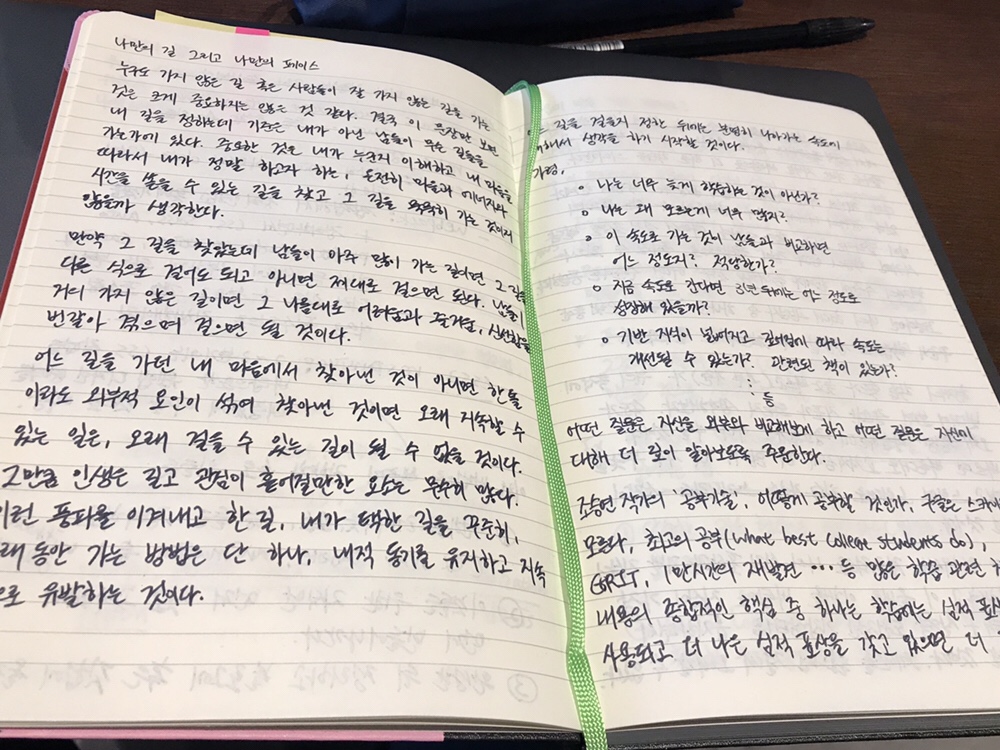 나만의 길 그리고 나만의 페이스
누구도 가지 않은 길 혹은 사람들이 잘 가지 않는 길을 가는
것은 크게 중요하지는 않은 것 같다. 결국 이 문장만 보면
내 길을 정하는데 기준은 내가 아닌 남들이 무슨 길들을
가는가에 있다. 중요한 것은 내가 누군지 이해하고 내 마음을
따라서 내가 정말 하고자 하는, 온전히 마음과 에너지와
시간을 쏟을 수 있는 길을 찾고 그 길을 묵묵히 가는 것이지
않을까 생각한다.
만약 그 길을 찾았는데 남들이 아주 많이 가는 길이면 그 길을
다른 식으로 걸어도 되고 아니면 제대로 걸으면 된다. 남들이
거의 가지 않은 길이면 그 나름대로 어려움과 즐거움, 신선함을
번갈아 겪으며 걸으면 될 것이다.
어느 길을 가던 내 마음에서 찾아낸 것이 아니면 한톨
이라도 외부적 요인이 섞여 찾아낸 것이면 오래 지속할 수
있는 일은, 오래 걸을 수 있는 길이 될 수 없을 것이다.
그만큼 인생은 길고 관심이 흩어질만한 요소는 무수히 많다.
이런 풍파를 이겨내고 한 길, 내가 택한 길을 꾸준히,
래 동안 가는 방법은 단 하나, 내적 동기를 유지하고 지속
으로 유발하는 것이다.
어느 길을 걸을지 정한 뒤에는 분명히 나아가는 속도에
대해서 생각을 하기 시작할 것이다.
가령,
o 나는 너무 늦게 학습하는 것이 아닌가?
o 나는 왜 모르는게 너무 많지?
o 이 속도로 가는 것이 남들과 비교하면
어느 정도지? 적당한가?
o 지금 속도로 간다면 3년 뒤에는 어느 정도로
성장해 있을까?
o 기반 지식이 넓어지고 깊어짐에 따라 속도는
개선될 수 있는가? 관련된 책이 있는가?
: 등
어떤 질문은 자신을 외부와 비교해보게 하고 어떤 질문은 자신에
대해 더 깊이 알아보도록 주문한다.
조승연 작가의 '공부기술', 어떻게 공부할 것인가, 구글은 스카이
모른다, 최고의 공부(What best college students do),
GRIT, 1만시간의 재발견 … 등 많은 학습 관련
내용의 종합적인 핵심 중 하나는 학습에는 심적 표상
사용되고 더 나은 심적 표상을 갖고 있으면 더